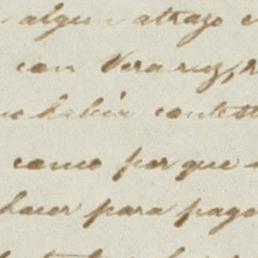 algun atrazo
con Veracruz, 
no habia contest
como por que
hacer para pago